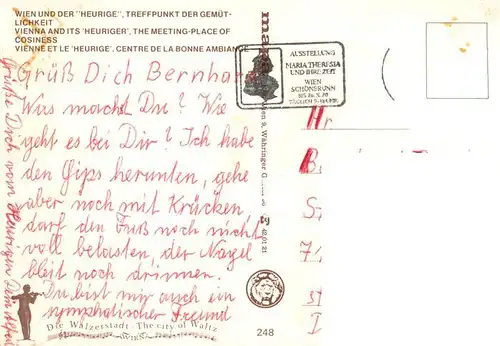 WIEN UND DER "HEURIGE", TREFFPUNKT DER GEMÜT-
LICHKEIT
VIENNA AND ITS 'HEURIGER', THE MEETING-PLACE OF
COSINESS
VIENNE ET LE 'HEURIGE', CENTRE DE LA BONNE AMBIANCE
Grüß Dich Bernhard
Was machst Du? Wie
geht es bei Dir? Ich habe
den Gips herunten, gehe
aber noch mit Krücken,
darf den Fuß noch nicht
voll belasten, der Nagel
bleit noch drinnen.
Du bist mir auch ein
symphatischer Freund
Grüße Dich vom Heurigen Dein
AUSSTELLUNG
MARIA THERESIA
UND IHRE ZEIT
WIEN
SCHÖNBRUNN
BIS 26. X. 80
TÄGLICH 9-18 UHR
Wien 9, Währinger G
Hr.
B
S
7
I
Die Walzerstadt - The city of Waltz
WIEN
248